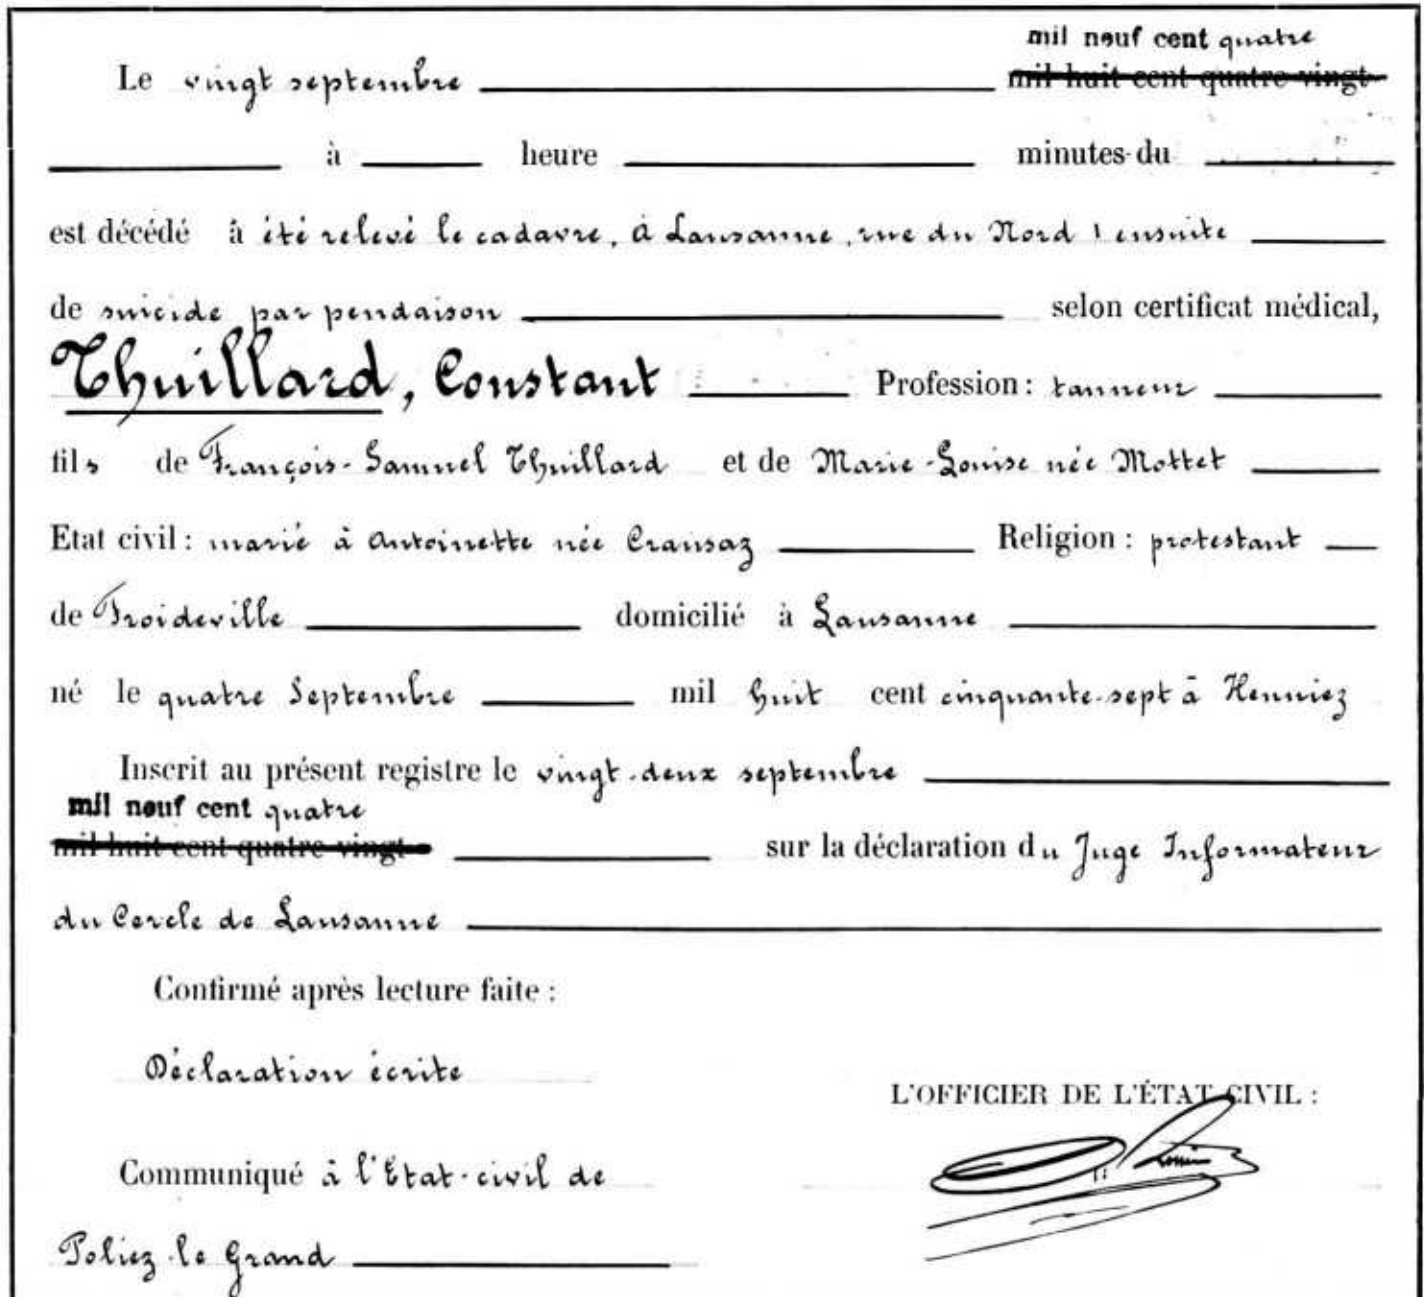 mil neuf cent quatre
Le vingt septembre mil huit cent quatre-vingt
à heure minutes du
est décédé à été relevé le cadavre, à Lausanne, rue du Nord 1 ensuite
de suicide par pendaison selon certificat médical,
Thuillard, Constant Profession : tanneur
fils de François-Samuel Thuillard et de Marie-Louise née Mottet
Etat civil : marié à Antoinette née Cransaz Religion : protestant
de Froideville domicilié à Lausanne
né le quatre Septembre mil huit cent cinquante-sept à Henniez
Inscrit au présent registre le vingt-deux septembre
mil neuf cent quatre
mil huit cent quatre-vingt sur la déclaration du Juge Informateur
du Cercle de Lausanne
Confirmé après lecture faite :
Déclaration écrite
L'OFFICIER DE L'ÉTAT CIVIL :
Communiqué à l'Etat-civil de
Poliez-le Grand